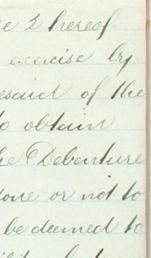 2 hereof
exercise by
esaid of the
to obtain
he Debenture
done or not to
be deemed to